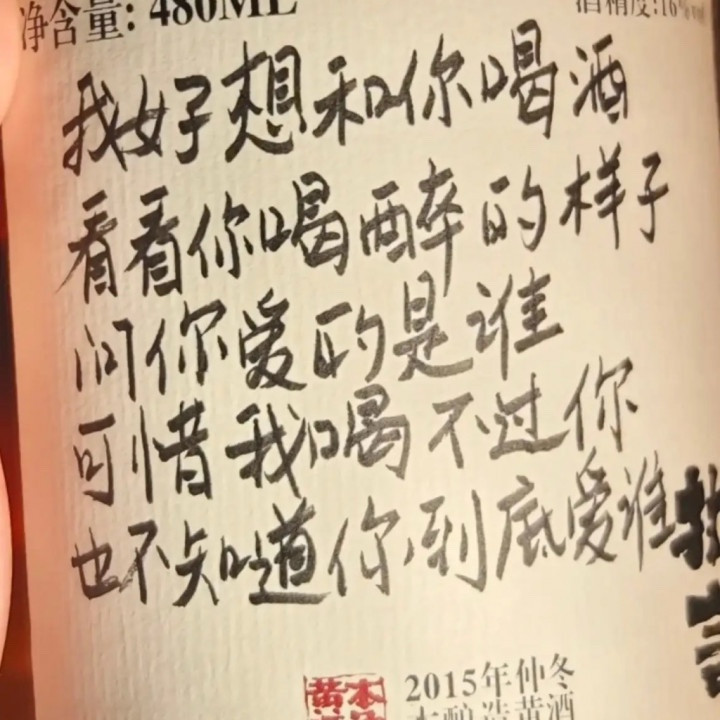 净含量: 480ML
酒精度:16%
我好想和你喝酒
看看你喝醉的样子
问你爱的是谁
可惜我喝不过你
也不知道你到底爱谁
2015年仲冬
本酿造黄酒